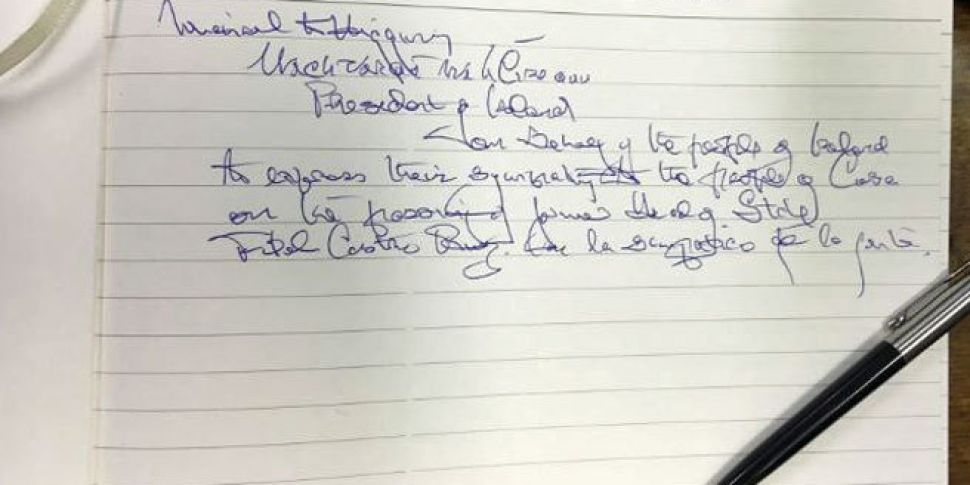 Micheál D. Higgins
Uachtarán na hÉireann
President of Ireland
on Behalf of the people of Ireland
to express their sympathy to the people of Cuba
on the passing of former Head of State
Fidel Castro Ruz. la simpatico de la gente.